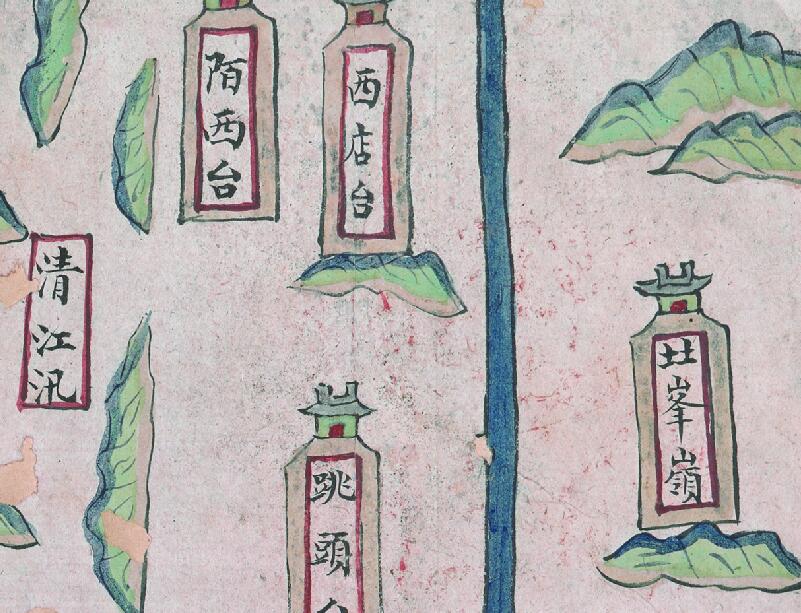 陌西台
西店台
清江汛
峯嶺
跳頭